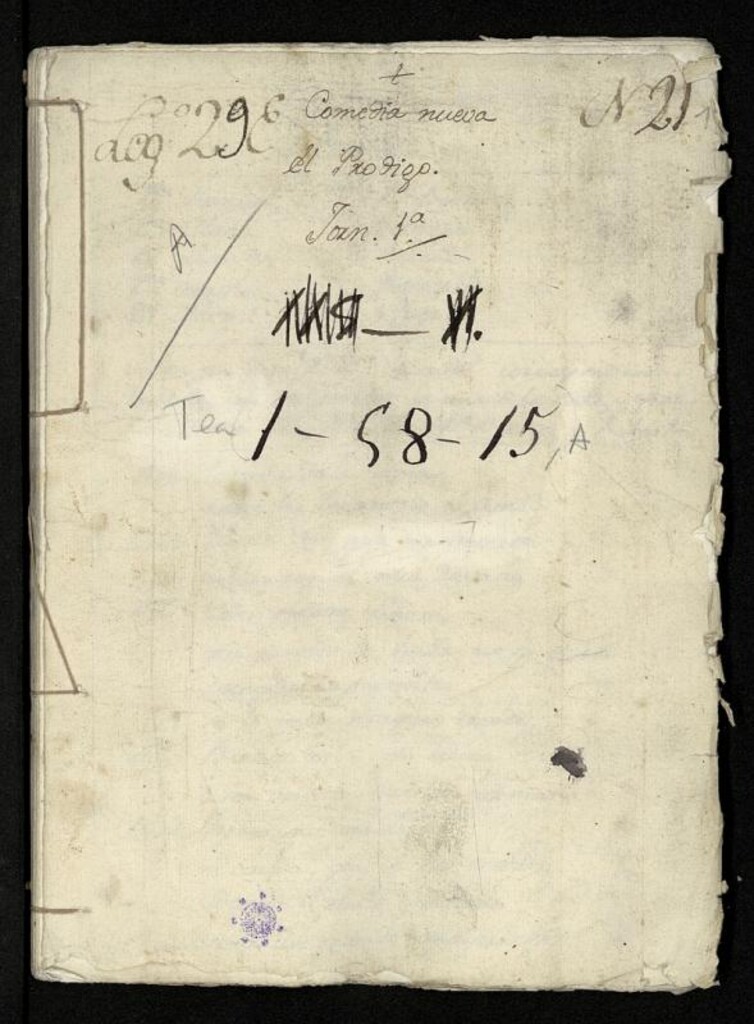 +
Leg.º 29 Comedia nueva N 21
el Prodigo.
Jorn. 1.ª
A
Tea 1-58-15, A